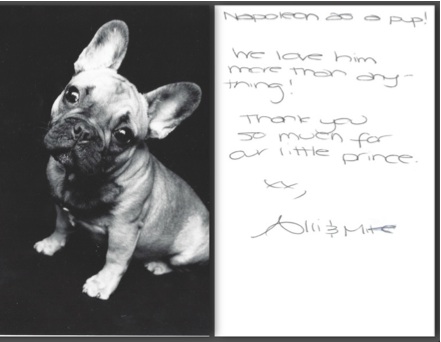 Napoleon as a pup!
We love him
more than any-
thing!
Thank you
so much for
our little prince.
xx,
Alli & Mike